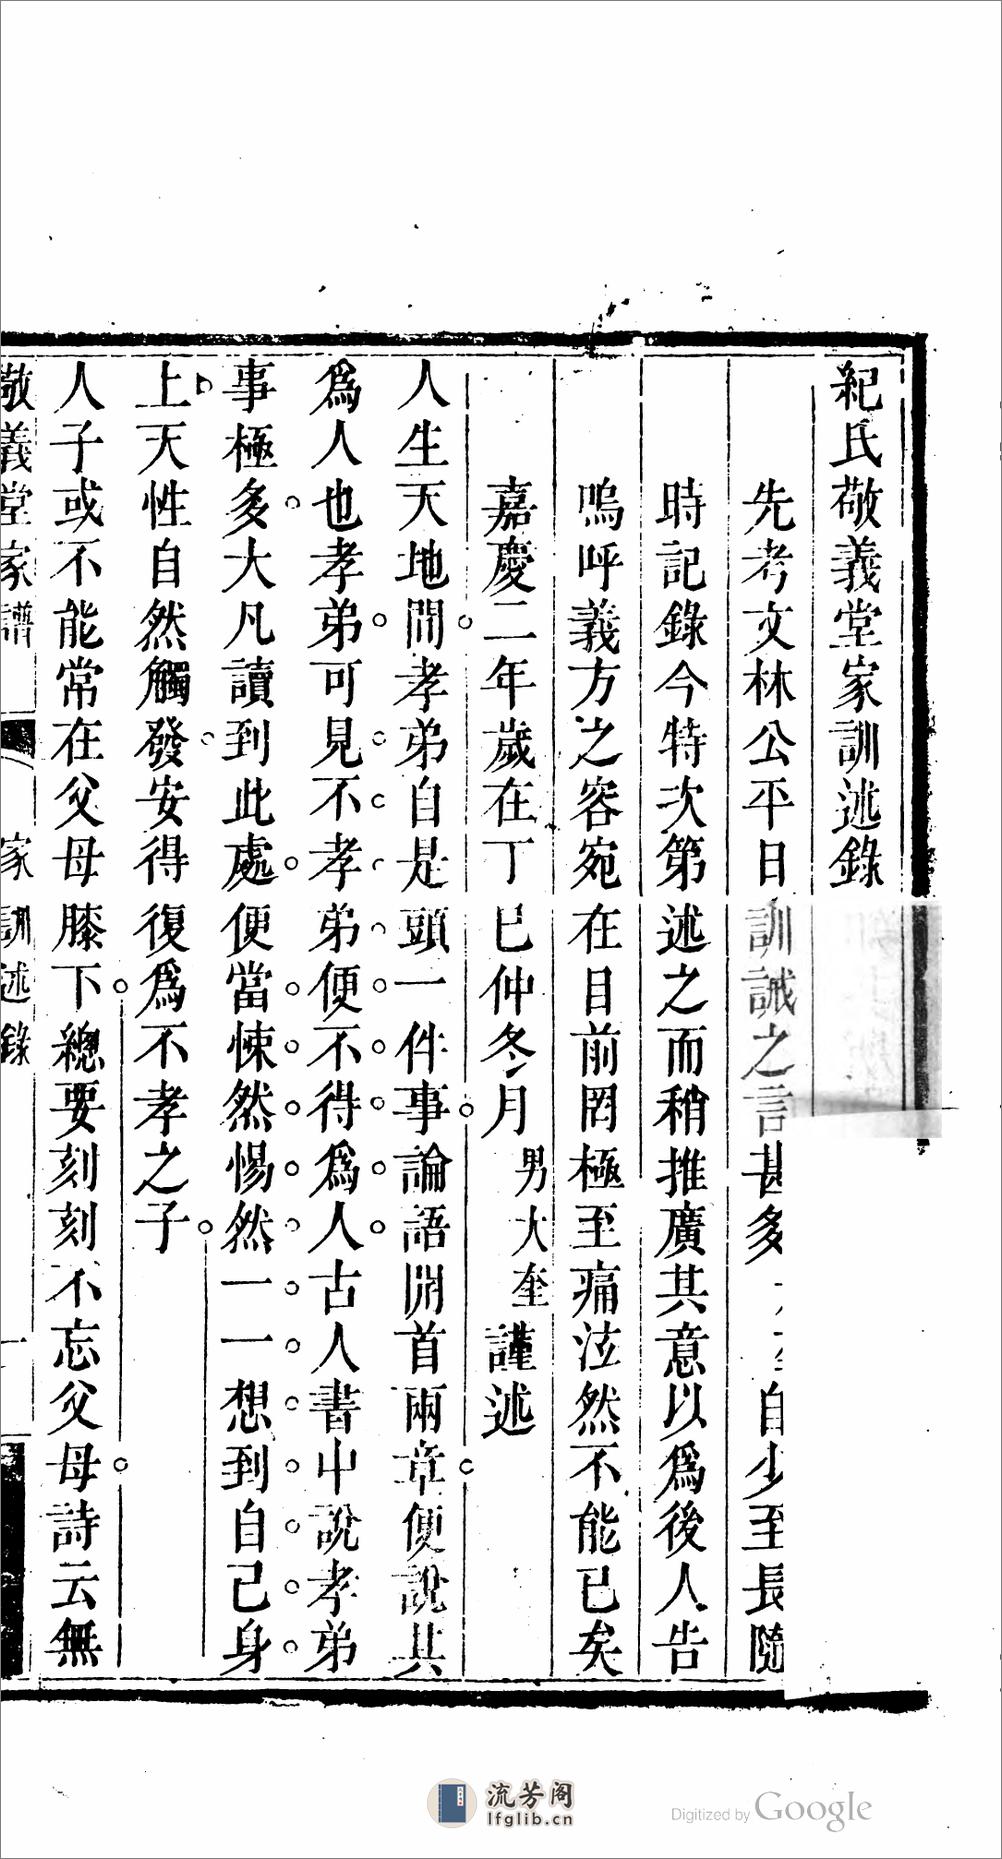 紀氏敬義堂家訓述錄
先考文林公平日訓誡之言甚多 自少至長隨
時記錄今特次第述之而稍推廣其意以爲後人告
嗚呼義方之容宛在目前罔極至痛泫然不能已矣
嘉慶二年歲在丁巳仲冬月男大奎謹述
人生天地間孝弟自是頭一件事論語開首兩章便說其
爲人也孝弟可見不孝弟便不得爲人古人書中說孝弟
事極多大凡讀到此處便當悚然惕然一一想到自己身
上天性自然觸發安得復爲不孝之子
人子或不能常在父母膝下總要刻刻不忘父母詩云無
敬義堂家譜 家訓述錄 一
流芳阁
lfglib.cn
Digitized by Google